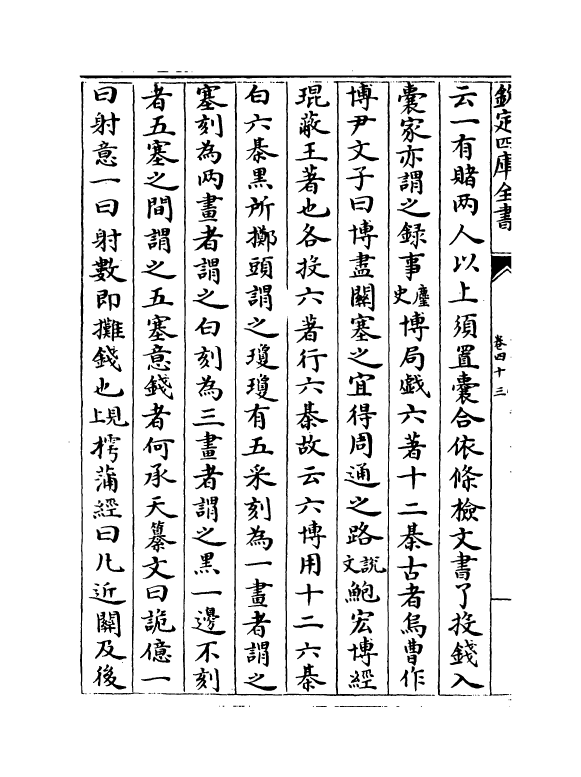 欽定四庫全書
卷四十三
云一有賭两人以上須置囊合依條檢文書了投錢入
囊家亦謂之録事塵史博局戯六著十二棊古者烏曹作
博尹文子曰博盡關塞之宜得周通之路說文鮑宏博經
琨蔽王著也各投六著行六棊故云六博用十二六棊
白六棊黑所擲頭謂之瓊瓊有五采刻為一畫者謂之
塞刻為两畫者謂之白刻為三畫者謂之黑一邊不刻
者五塞之間謂之五塞意錢者何承天纂文曰詭億一
曰射意一曰射數即攤錢也見上樗蒲經曰凡近關及後